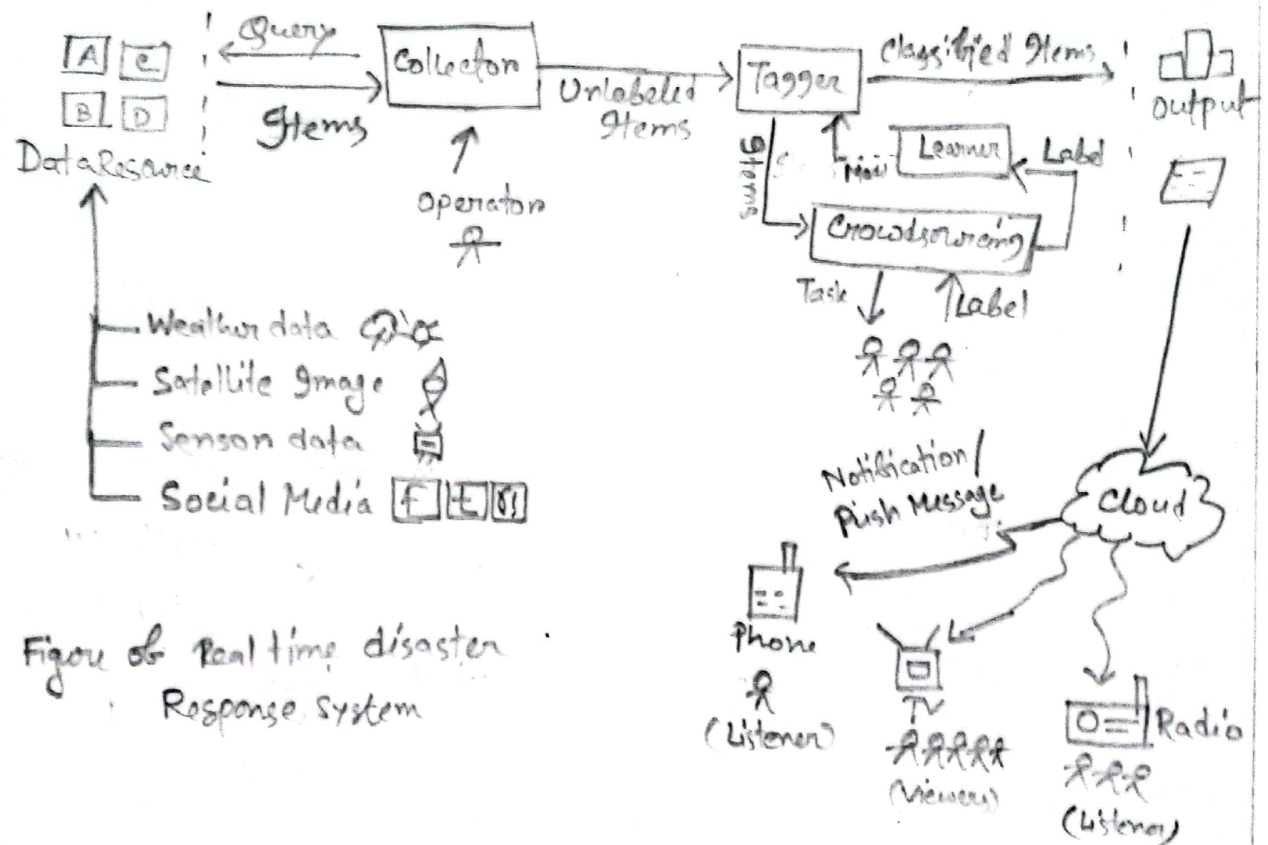 Query
A
C
B
D
Items
Data Resource
Collector
Operator
Unlabeled
Items
Tagger
Classified Items
Output
Items
Learner
Label
Crowdsourcing
Task
Label
Weather data
Satellite Image
Sensor data
Social Media f t
Notification/
Push Message
Cloud
Phone
(Listener)
TV
(Viewers)
Radio
(Listener)
Figure of Real time disaster
Response System